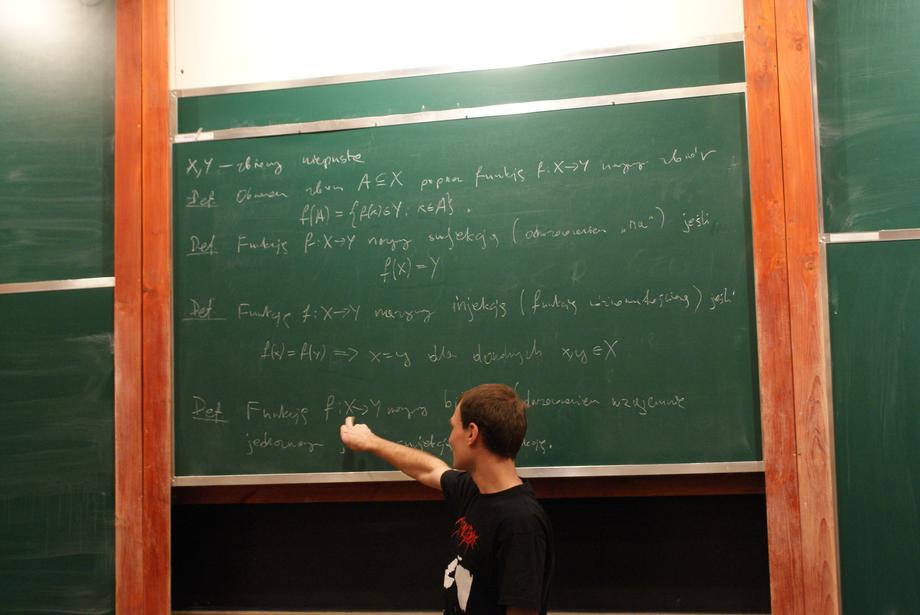 X, Y – zbiory niepuste
Def Obrazem zbioru A ⊆ X poprzez funkcję f: X→Y nazywamy zbiór
f(A) = {f(x)∈Y : x∈A}.
Def Funkcję f: X→Y nazywamy surjekcją (odwzorowaniem „na”) jeśli
f(X) = Y
Def Funkcję f: X→Y nazywamy injekcją (funkcją różnowartościową) jeśli
f(x) = f(y) ⟹ x=y dla dowolnych x,y ∈ X
Def Funkcję f: X→Y nazywamy wzajemnie
jednoznacznym